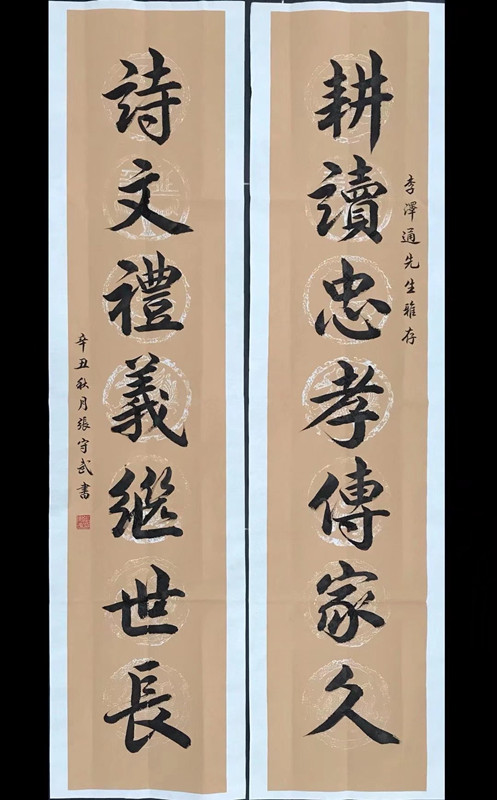 李澤通先生雅存
耕讀忠孝傳家久
詩文禮義繼世長
辛丑秋月張守武書